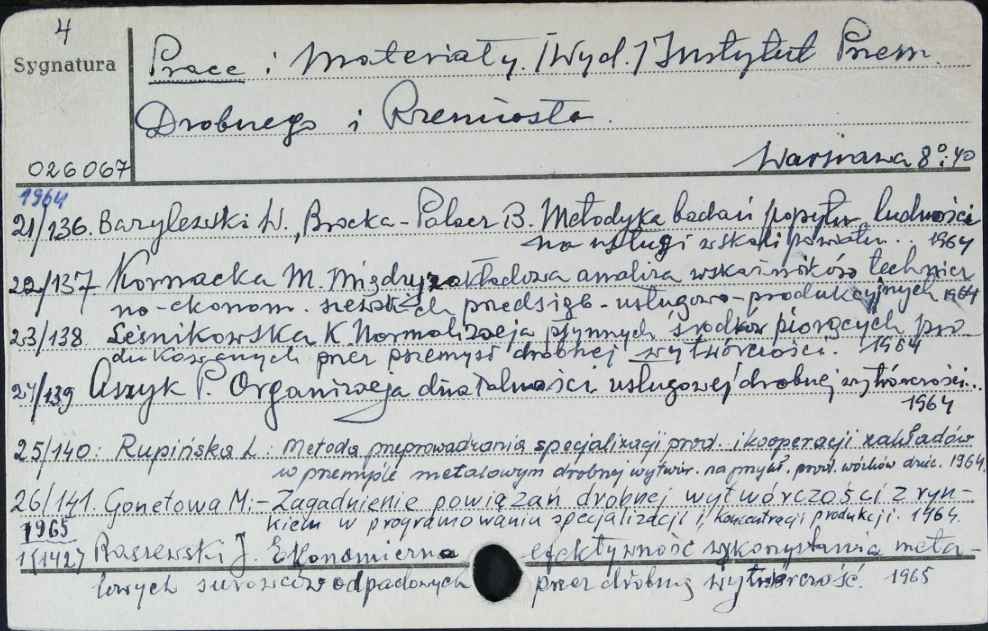 4
Sygnatura
Prace i Materiały. [Wyd.] Instytut Przem.
Drobnego i Rzemiosła.
026067
Warszawa 8° i 40
1964
21/136. Barylewski W., Brocka-Palacr B. Metodyka badań popytu ludności
na usługi w skali powiatu.. 1964
22/137 Kornacka M. Międzyzakładowa analiza wskaźników technicz
no-ekonom. przedsięb.-usługowo-produkcyjnych 1964
23/138. Leśnikowska K. Normalizacja płynnych środków piorących pro-
dukowanych przez przemysł drobnej wytwórczości. 1964
24/139 Aszyk P. Organizacja działalności usługowej drobnej wytwórczości...
1964
25/140. Rupińska L. Metoda przeprowadzania specjalizacji prod. i kooperacji zakładów
w przemyśle metalowym drobnej wytwór. na przykł. prod. wózków dziec. 1964.
26/141. Gonetowa M.- Zagadnienie powiązań drobnej wytwórczości z ryn-
kiem w programowaniu specjalizacji i koncentracji produkcji. 1964.
1965
1/(142) Raszewski J. Ekonomiczna efektywność wykorzystania meta-
lowych surowców odpadowych przez drobną wytwórczość. 1965